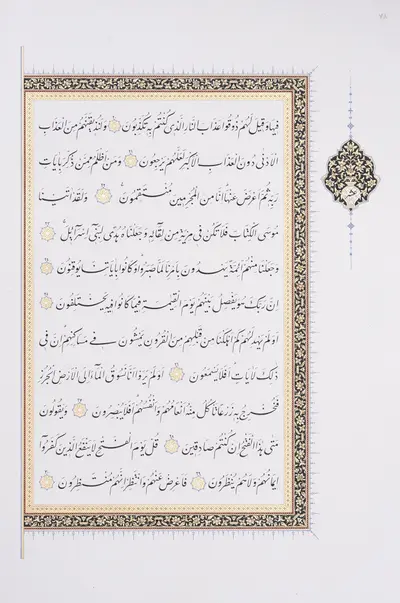 فِيهَا وَقِيلَ لَهُمْ ذُوقُوا عَذَابَ النَّارِ الَّذِي كُنْتُمْ بِهِ تُكَذِّبُونَ وَلَنُذِيقَنَّهُمْ مِنَ الْعَذَابِ
الْأَدْنَى دُونَ الْعَذَابِ الْأَكْبَرِ لَعَلَّهُمْ يَرْجِعُونَ وَمَنْ أَظْلَمُ مِمَّنْ ذُكِّرَ بِآيَاتِ
رَبِّهِ ثُمَّ أَعْرَضَ عَنْهَا إِنَّا مِنَ الْمُجْرِمِينَ مُنْتَقِمُونَ وَلَقَدْ آتَيْنَا
مُوسَى الْكِتَابَ فَلَا تَكُنْ فِي مِرْيَةٍ مِنْ لِقَائِهِ وَجَعَلْنَاهُ هُدًى لِبَنِي إِسْرَائِيلَ
وَجَعَلْنَا مِنْهُمْ أَئِمَّةً يَهْدُونَ بِأَمْرِنَا لَمَّا صَبَرُوا وَكَانُوا بِآيَاتِنَا يُوقِنُونَ
إِنَّ رَبَّكَ هُوَ يَفْصِلُ بَيْنَهُمْ يَوْمَ الْقِيمَةِ فِيمَا كَانُوا فِيهِ يَخْتَلِفُونَ
أَوَلَمْ يَهْدِ لَهُمْ كَمْ أَهْلَكْنَا مِنْ قَبْلِهِمْ مِنَ الْقُرُونِ يَمْشُونَ فِي مَسَاكِنِهِمْ إِنَّ فِي
ذَلِكَ لَآيَاتٍ أَفَلَا يَسْمَعُونَ أَوَلَمْ يَرَوْا أَنَّا نَسُوقُ الْمَاءَ إِلَى الْأَرْضِ الْجُرُزِ
فَنُخْرِجُ بِهِ زَرْعًا تَأْكُلُ مِنْهُ أَنْعَامُهُمْ وَأَنْفُسُهُمْ أَفَلَا يُبْصِرُونَ وَيَقُولُونَ
مَتَى هَذَا الْفَتْحُ إِنْ كُنْتُمْ صَادِقِينَ قُلْ يَوْمَ الْفَتْحِ لَا يَنْفَعُ الَّذِينَ كَفَرُوا
إِيمَانُهُمْ وَلَا هُمْ يُنْظَرُونَ فَأَعْرِضْ عَنْهُمْ وَانْتَظِرْ إِنَّهُمْ مُنْتَظِرُونَ